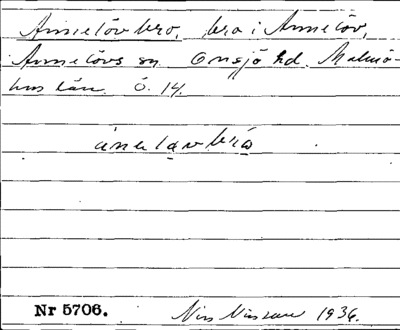 Annelövbro, bro i Annelöv,
Annelövs sn. Onsjö hd. Malmö-
hus län. Ö. 14.
Nr 5706. Nils Nilsson 1936.